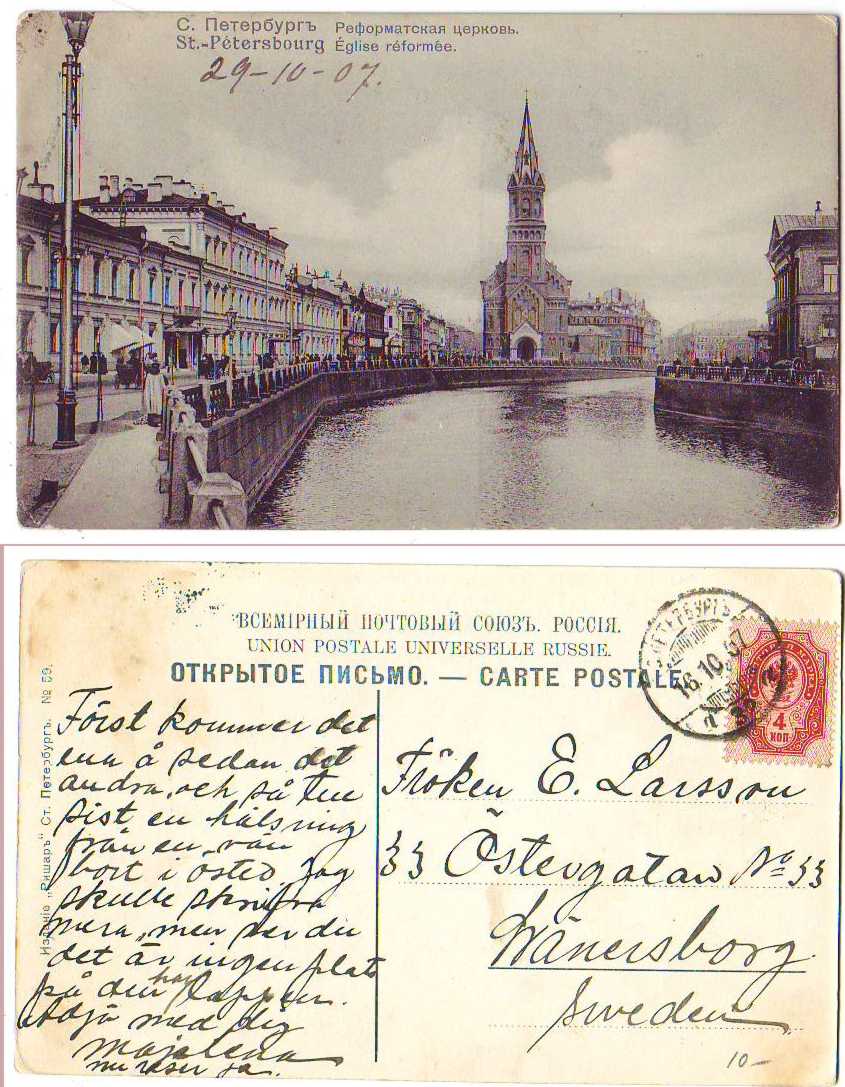 С. Петербургъ Реформатская церковь.
St.-Pétersbourg Église réformée.
29-10-07.
ВСЕМІРНЫЙ ПОЧТОВЫЙ СОЮЗЪ. РОССІЯ.
UNION POSTALE UNIVERSELLE RUSSIE.
ОТКРЫТОЕ ПИСЬМО. — CARTE POSTALE.
С ПЕТЕРБУРГЪ
16.10.07
4
КОП
Изданіе „Ришаръ" Ст. Петербургъ. № 59.
Först kommer det
ena å sedan det
andra, och så
sist en hälsning
från en vän
bort i öster Jag
skulle skrifva
mera, men ser du
det är ingen plats
på den här lappen.
Adjö med dig
nu reser ja.
Fröken E. Larsson
33 Östergatan No 33
Wänersborg
Sweden
10-